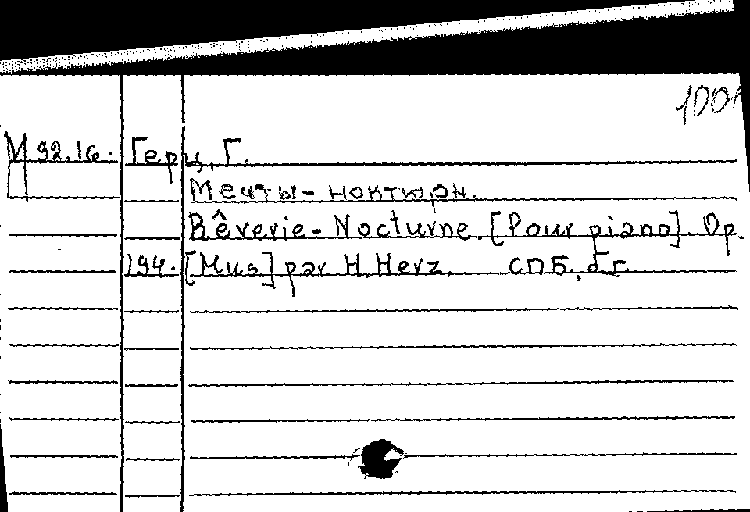 М 92.16. Герц, Г.
Мечты - ноктюрн.
Rêverie - Nocturne. [Pour piano]. Op.
194. [Mus] par H. Herz. СПБ, б.г.